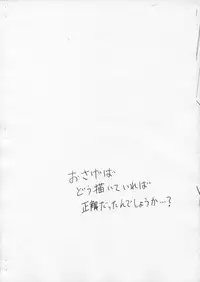 おさげは
どう描いていれば
正解だったんでしょうかー?